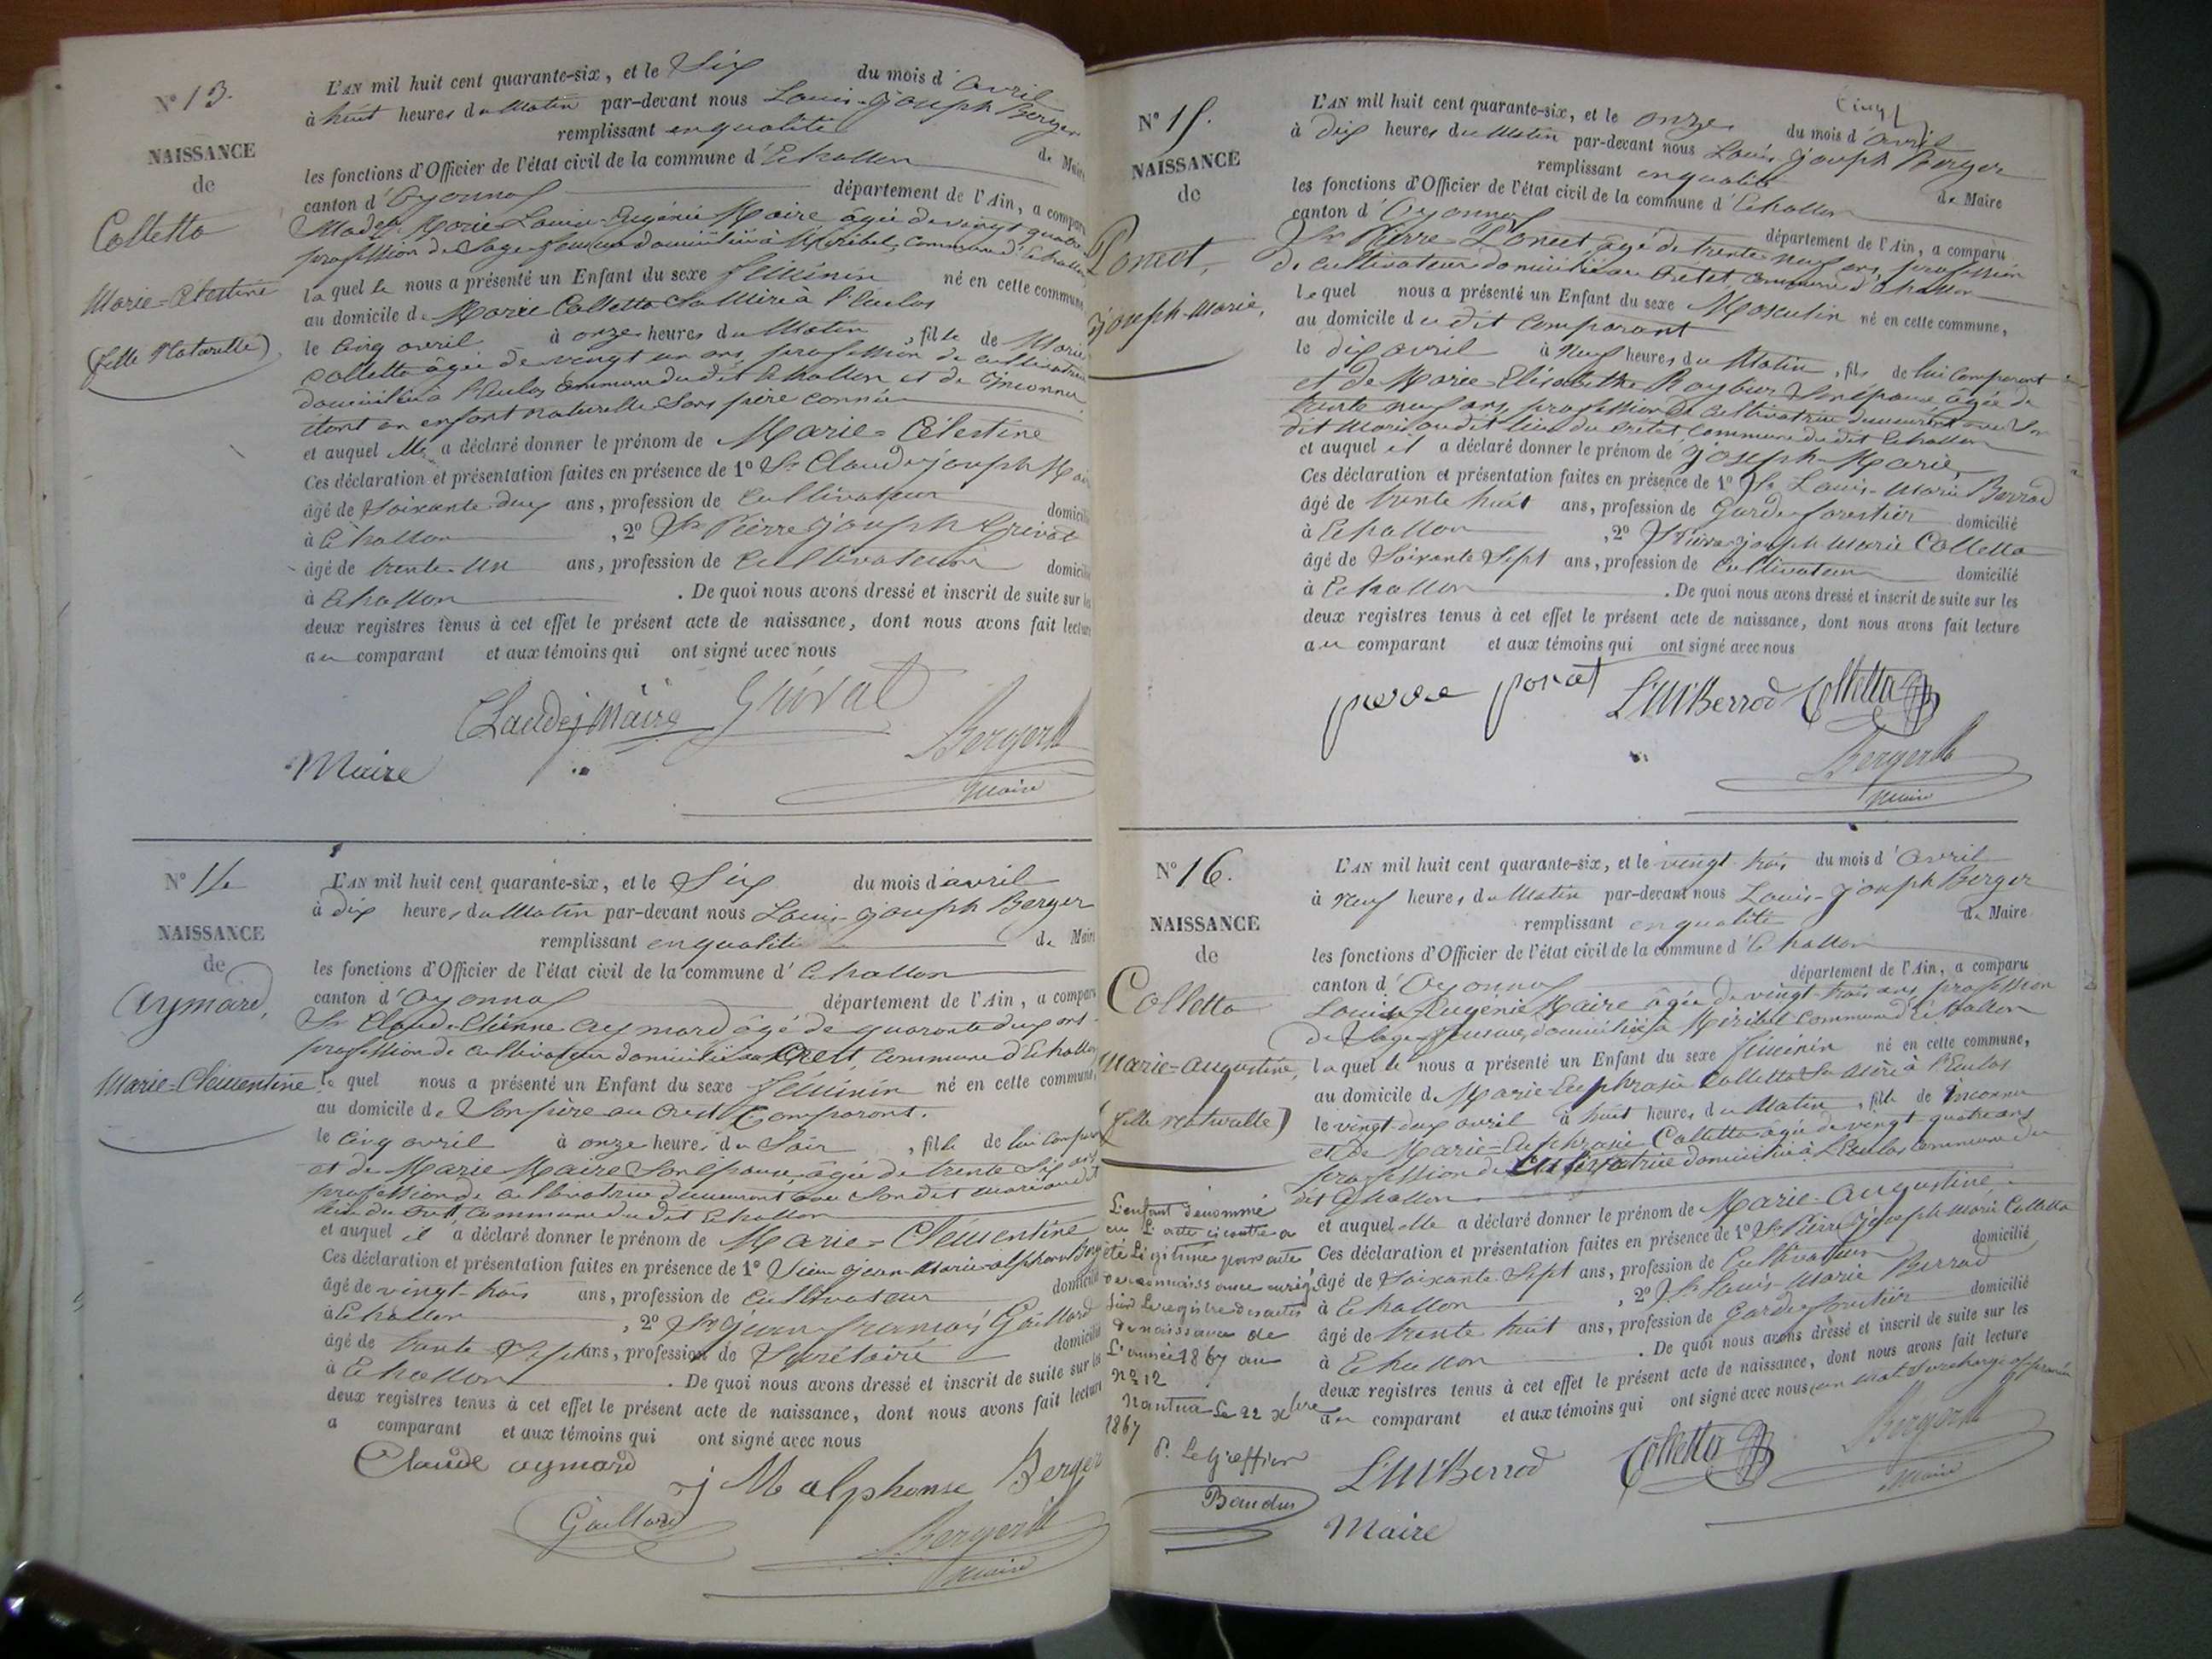 N° 13.
NAISSANCE
de
Colletta
Marie-Célestine
(fille Naturelle)
L'AN mil huit cent quarante-six, et le Six du mois d'avril
à huit heures du Matin par-devant nous Louis-Joseph Berger
remplissant en qualité de Maire
les fonctions d'Officier de l'état civil de la commune d'Echallon
canton d'Oyonnax département de l'Ain, a comparu
Madelle Marie Louise Eugénie Maire âgée de vingt quatre
profession de Sage femme domiciliée à Miribel, commune d'Echallon
laquelle nous a présenté un Enfant du sexe féminin né en cette commune
au domicile de Marie Colletta Sa Mère à l'Enclos
le cinq avril à onze heures du Matin, fille de Marie
Colletta âgée de vingt un ans, profession de cultivatrice
domiciliée à l'Enclos commune du dit Echallon et de Inconnu
étant un enfant naturelle Sans père connu
et auquel elle a déclaré donner le prénom de Marie=Célestine
Ces déclaration et présentation faites en présence de 1° Sr Claude joseph Maire
âgé de soixante deux ans, profession de Cultivateur domicilié
à Echallon, 2° Sr Pierre joseph Grivat
âgé de trente-un ans, profession de Cultivateur domicilié
à Echallon. De quoi nous avons dressé et inscrit de suite sur les
deux registres tenus à cet effet le présent acte de naissance, dont nous avons fait lecture
au comparant et aux témoins qui ont signé avec nous
Claude j Maire Grivat
Berger
Maire
Maire
N° 14
NAISSANCE
de
Aymard,
Marie-Clémentine
L'AN mil huit cent quarante-six, et le Six du mois d'avril
à dix heures du Matin par-devant nous Louis-Joseph Berger
remplissant en qualité de Maire
les fonctions d'Officier de l'état civil de la commune d'Echallon
canton d'Oyonnax département de l'Ain, a comparu
Sr Claude-Etienne Aymard âgé de quarante deux ans
profession de cultivateur domicilié au Crest, commune d'Echallon
lequel nous a présenté un Enfant du sexe féminin né en cette commune,
au domicile de Son père au Crest Comparant.
le cinq avril à onze heures du Soir, fille de lui comparant
et de Marie Maire Son épouse, âgée de trente Six ans
profession de cultivatrice demeurant avec Son dit mari au dit
lieu du Crest commune du dit Echallon
et auquel il a déclaré donner le prénom de Marie=Clémentine
Ces déclaration et présentation faites en présence de 1° Sieur Jean-Marie-alphonse Berger
âgé de vingt-trois ans, profession de Cultivateur domicilié
à Echallon, 2° Sr Jean françois Gaillard
âgé de trente-Sept ans, profession de Secrétaire domicilié
à Echallon. De quoi nous avons dressé et inscrit de suite sur les
deux registres tenus à cet effet le présent acte de naissance, dont nous avons fait lecture
a comparant et aux témoins qui ont signé avec nous
Claude aymard j M alphonse Berger
Gaillard Berger
Maire
Cinq
N° 15.
NAISSANCE
de
Poncet,
Joseph-Marie,
L'AN mil huit cent quarante-six, et le onze du mois d'avril
à dix heures du Matin par-devant nous Louis-Joseph Berger
remplissant en qualité de Maire
les fonctions d'Officier de l'état civil de la commune d'Echallon
canton d'Oyonnax département de l'Ain, a comparu
Sr Pierre Poncet âgé de trente neuf ans, profession
de cultivateur domicilié au Cretet, commune d'Echallon
lequel nous a présenté un Enfant du sexe Masculin né en cette commune,
au domicile du dit Comparant
le dix avril à Neuf heures du Matin, fils de lui Comparant
et de Marie-Elisabethe Son épouse, âgée de
trente neuf ans, profession de cultivatrice demeurant avec Son
dit Mari au dit lieu du Cretet, Commune du dit Echallon
et auquel il a déclaré donner le prénom de Joseph-Marie,
Ces déclaration et présentation faites en présence de 1° Sr Louis-Marie Berrod
âgé de trente huit ans, profession de Garde forestier domicilié
à Echallon, 2° Sr Pierre-joseph Marie Colletta
âgé de Soixante Sept ans, profession de Cultivateur domicilié
à Echallon. De quoi nous avons dressé et inscrit de suite sur les
deux registres tenus à cet effet le présent acte de naissance, dont nous avons fait lecture
au comparant et aux témoins qui ont signé avec nous
L M Berrod Colletta
Berger
Maire
N° 16.
NAISSANCE
de
Colletta
Marie-Augustine,
(fille naturelle)
L'AN mil huit cent quarante-six, et le vingt-trois du mois d'avril
à neuf heures du Matin par-devant nous Louis-Joseph Berger
remplissant en qualité de Maire
les fonctions d'Officier de l'état civil de la commune d'Echallon
canton d'Oyonnax département de l'Ain, a comparu
Louise Eugénie Maire âgée de vingt-trois ans, profession
de Sage femme, domiciliée à Miribel Commune d'Echallon
laquelle nous a présenté un Enfant du sexe féminin né en cette commune,
au domicile de Marie-Euphrasie Colletta Sa Mère à l'Enclos
le vingt-deux avril à huit heures du Matin, fille de Inconnu
et de Marie-Euphrasie Colletta âgée de vingt-quatre ans
profession de Cultivatrice domiciliée à l'Enclos Commune du
dit Echallon
et auquel elle a déclaré donner le prénom de Marie-Augustine
Ces déclaration et présentation faites en présence de 1° Sr Pierre joseph Marie Colletta
âgé de Soixante-Sept ans, profession de Cultivateur domicilié
à Echallon, 2° Sr Louis-Marie Berrod
âgé de trente huit ans, profession de Garde forestier domicilié
à Echallon. De quoi nous avons dressé et inscrit de suite sur les
deux registres tenus à cet effet le présent acte de naissance, dont nous avons fait lecture
au comparant et aux témoins qui ont signé avec nous un mot Surchargé approuvé
L'enfant dénommé
en l'acte ci contre a
été Légitimé par acte
de reconnaissance enregé
Sur Le registre des actes
de naissance de
L'année 1867 au
n° 12
Nantua Le 22 Xbre
1867
P. Le Greffier
Baudus
L M Berrod Colletta Berger
Maire
Maire